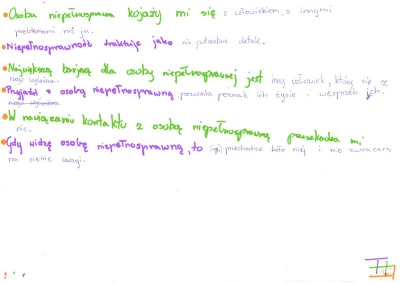 Osoba niepełnosprawna kojaży mi się z człowiekiem, z innymi
problemami, niż ja.
Niepełnosprawność traktuję jako nie potrzebne detale.
Największą barjerą dla osoby niepełnosprawnej jest inny człowiek, który się z
Przyjaźń z osobą niepełnosprawną pozwala poznać ich życie i wesprzeć ich.
W nawiązaniu kontaktu z osobą niepełnosprawną przeszkadza mi
nic.
Gdy widzę osobę niepełnosprawną, to przechodzę koło niej i nie zwracam
na siebie uwagi.